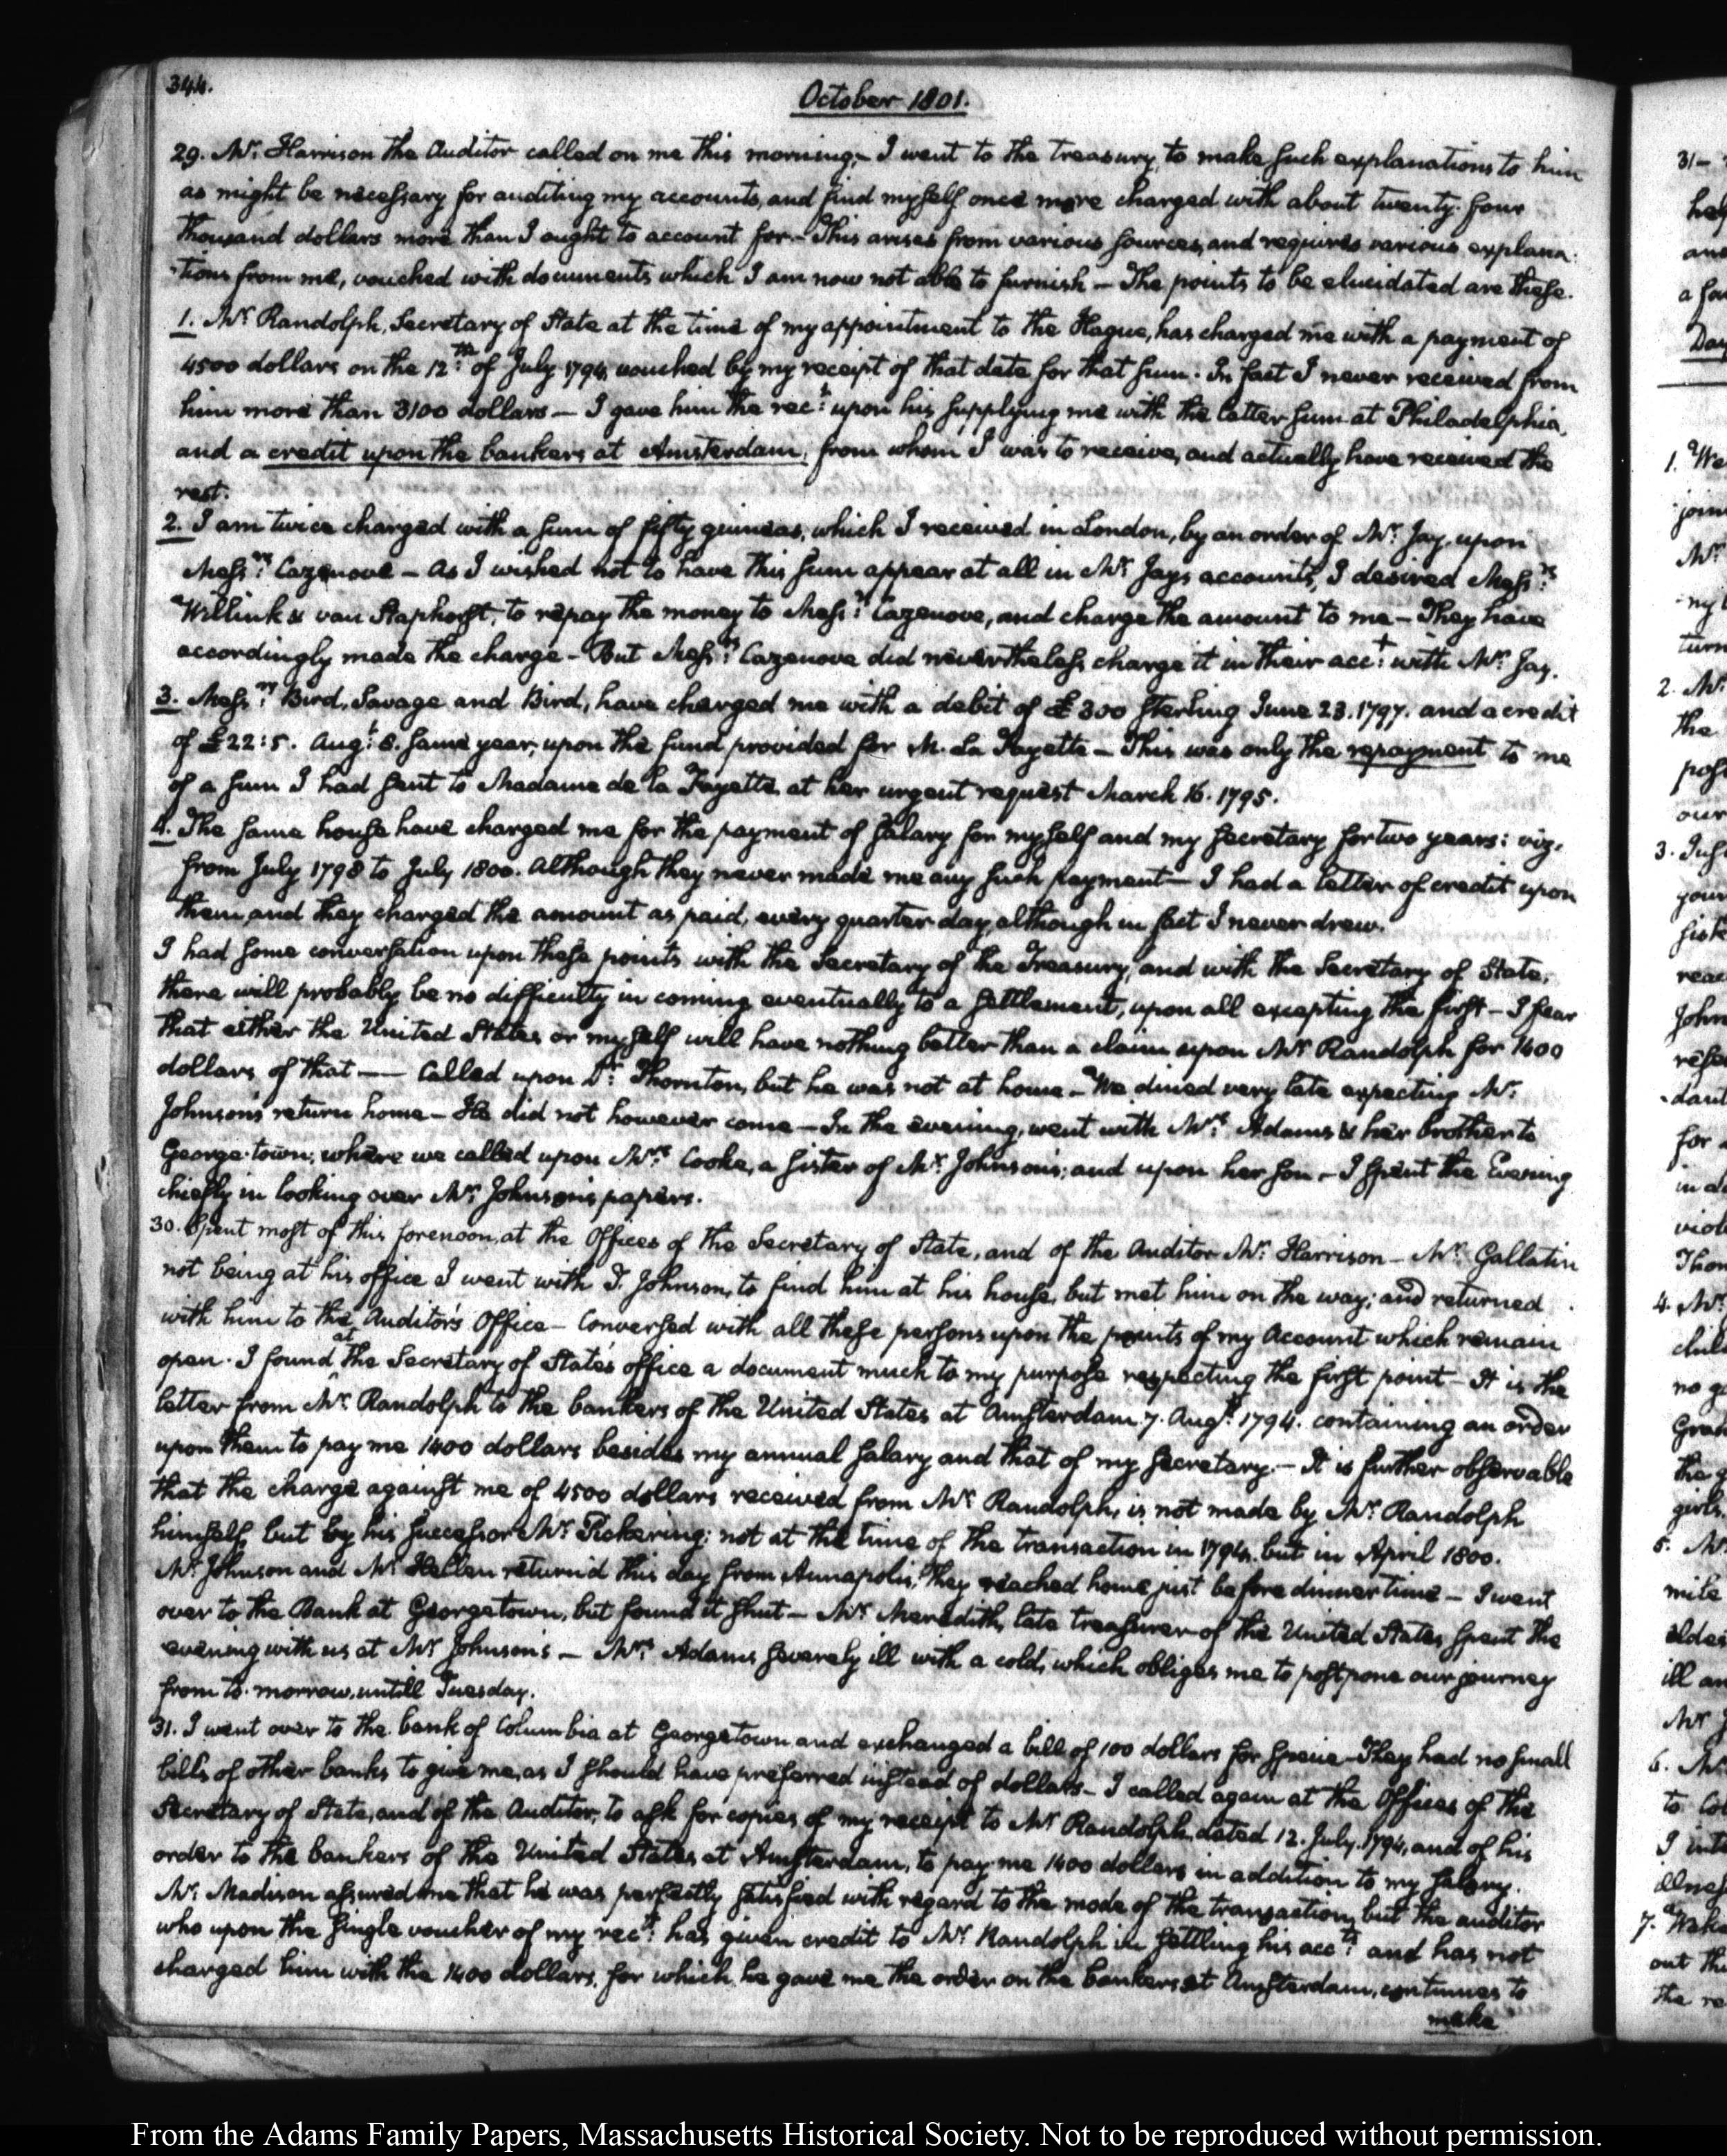 344.
October 1801.
29. Mr. Harrison the Auditor called on me this morning,- I went to the treasury, to make such explanations to him
as might be necessary for auditing my accounts, and find myself once more charged with about twenty-four
thousand dollars more than I ought to account for.- This arises from various sources, and requires various explana-
-tions from me, vouched with documents which I am now not able to furnish — The points to be elucidated are these.
1. Mr. Randolph, Secretary of State at the time of my appointment to the Hague, has charged me with a payment of
4500 dollars on the 12th. of July 1794, vouched by my receipt of that date for that sum. In fact I never received from
him more than 3100 dollars — I gave him the rect. upon his supplying me with the latter sum at Philadelphia,
and a credit upon the bankers at Amsterdam, from whom I was to receive, and actually have received the
rest.
2. I am twice charged with a sum of fifty guineas, which I received in London, by an order of Mr. Jay, upon
Messrs. Cazenove — As I wished not to have this sum appear at all in Mr. Jays accounts, I desired Messrs.
Willink & van Staphorst, to repay the money to Messrs. Cazenove, and charge the amount to me — They have
accordingly made the charge — But Messrs. Cazenove did nevertheless charge it in their acct. with Mr. Jay.
3. Messrs. Bird, Savage and Bird, have charged me with a debit of £300 sterling June 23. 1797. and a credit
of £22:5. Augt. 8. same year, upon the fund provided for M. La Fayette — This was only the repayment to me
of a sum I had sent to Madame de la Fayette, at her urgent request March 16. 1795.
4. The same house have charged me for the payment of salary for myself and my secretary for two years: viz.
from July 1798 to July 1800. Although they never made me any such payment — I had a letter of credit upon
them, and they charged the amount as paid, every quarter day, although in fact I never drew.
I had some conversation upon these points with the Secretary of the Treasury, and with the Secretary of State,
there will probably be no difficulty in coming eventually to a settlement, upon all excepting the first — I fear
that either the United States or myself will have nothing better than a claim upon Mr. Randolph for 1400
dollars of that —— Called upon Dr. Thornton, but he was not at home — We dined very late expecting Mr.
Johnson's return home — He did not however come — In the evening, went with Mrs. Adams & her brother to
George-town, where we called upon Mrs. Cooke, a sister of Mr. Johnson's; and upon her son — I spent the Evening
chiefly in looking over Mr. Johnson's papers.
30. Spent most of this forenoon, at the Offices of the Secretary of State, and of the Auditor Mr. Harrison — Mr. Gallatin
not being at his office I went with T. Johnson, to find him at his house, but met him on the way; and returned
with him to the Auditor's Office — Conversed with all these persons upon the points of my Account which remain
open. I found at the Secretary of State's office a document much to my purpose respecting the first point — It is the
letter from Mr. Randolph to the bankers of the United States at Amsterdam 7. Augt. 1794. containing an order
upon them to pay me 1400 dollars besides my annual salary and that of my secretary. — It is further observable
that the charge against me of 4500 dollars received from Mr. Randolph, is not made by Mr. Randolph
himself, but by his successor Mr. Pickering; not at the time of the transaction in 1794, but in April 1800.
Mr. Johnson and Mr. Hellen return'd this day from Annapolis; they reached home just before dinner time — I went
over to the Bank at Georgetown, but found it shut — Mr. Meredith, late treasurer of the United States, spent the
evening with us at Mr. Johnson's — Mrs. Adams severely ill with a cold, which obliges me to postpone our journey
from to-morrow, untill Tuesday.
31. I went over to the bank of Columbia at Georgetown, and exchanged a bill of 100 dollars for specie — They had no small
bills of other banks to give me, as I should have preferred instead of dollars — I called again at the Offices of the
Secretary of State, and of the Auditor, to ask for copies of my receipt to Mr. Randolph, dated 12. July. 1794, and of his
order to the bankers of the United States at Amsterdam, to pay me 1400 dollars in addition to my salary.
Mr. Madison assured me that he was perfectly satisfied with regard to the mode of the transaction, but the auditor
who upon the single voucher of my rect. has given credit to Mr. Randolph in settling his accts. and has not
charged him with the 1400 dollars, for which he gave me the order on the bankers at Amsterdam, continues to
make
From the Adams Family Papers, Massachusetts Historical Society. Not to be reproduced without permission.